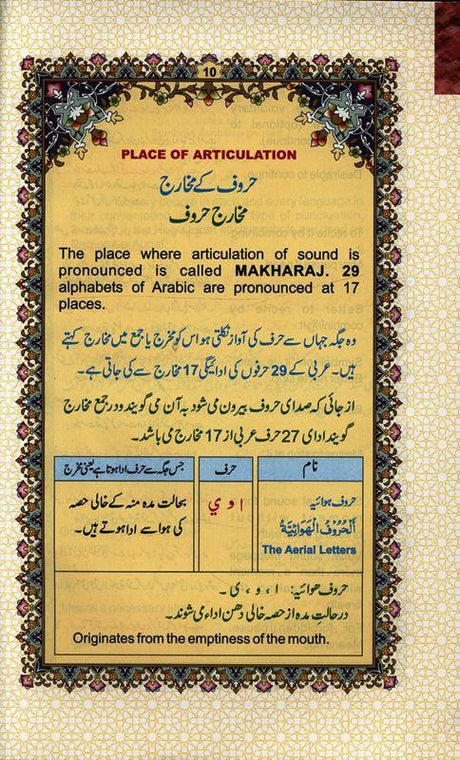 10
PLACE OF ARTICULATION
حروف کے مخارج
مخارج حروف
The place where articulation of sound is
pronounced is called MAKHARAJ. 29
alphabets of Arabic are pronounced at 17
places.
وہ جگہ جہاں سے حرف کی آواز نکلتی ہو اس کو مخرج یا جمع میں مخارج کہتے
ہیں۔ عربی کے 29 حرفوں کی ادائیگی 17 مخارج سے کی جاتی ہے۔
از جائی کہ صدای حروف بیرون می شود بہ آن می گویند و در جمع مخارج
گویند ادای 27 حرف عربی از 17 مخارج می باشد۔
نام
حرف
جس جگہ سے حرف ادا ہوتا ہے یعنی مخرج
حروف ہوائیہ
اَلْحُرُوْفُ الْهَوَائِيَّةُ
The Aerial Letters
ا و ي
بحالت مدہ منہ کے خالی حصہ
کی ہوا سے ادا ہوتے ہیں۔
حروف ھوائیہ: ا ، و ، ی ۔
در حالتِ مدہ از حصہ خالی دھن ادا می شوند۔
Originates from the emptiness of the mouth.